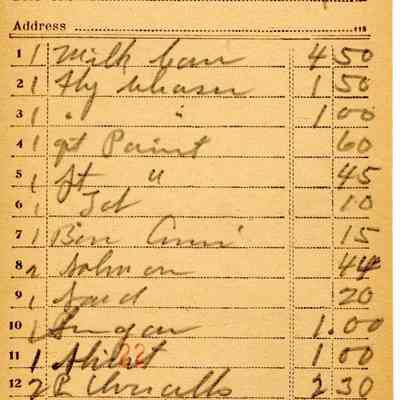 Address
1 1 Milk Can 4 50
2 1 Fly 1 50
3 1 " " 1 00
4 1 qt Paint 60
5 1 pt " 45
6 1 10
7 1 Box 15
8 2 Salmon 44
9 1 Lard 20
10 1 Sugar 1.00
11 1 Shirt 22 1 00
12 2 2 30